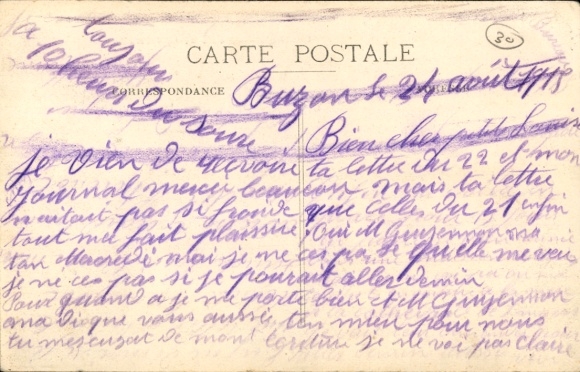 30
toujours
10 heures du soire
CARTE POSTALE
CORRESPONDANCE
Buzan le 24 août 1915
Bien cher petit Louis
je vien de recevoire ta lettre du 22 et mon
Journal merci beaucou mais ta lettre
n'aitait pas si froide que celles du 21 enfin
tout me fait plaisire Oui M Guyennon ma
tan mai je me ces pas ce quelle me veu
je ne ces pas si je pourait aller demin
Pour quand a je me porte bien et M Guyennon
ma dique vous aussi, tan mieu pour nous
tu mescuzat de mont écriture je ne voi pas claire